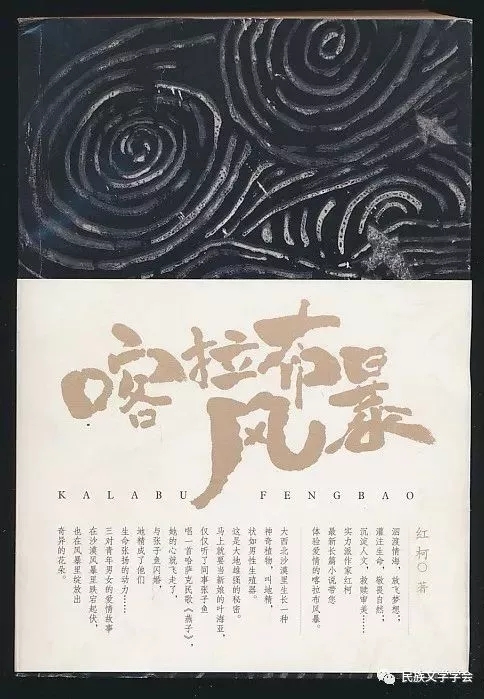 喀拉布
风暴
KALABU FENGBAO
红柯〇著
泅渡情海，放飞梦想，
灌注生命，敬畏自然，
沉淀人文，救赎审美……
实力派作家红柯
最新长篇小说带您
体验爱情的喀拉布风暴。
大西北沙漠里生长一种
神奇植物，叫地精，
状如男性生殖器。
这是大地雄强的秘密。
马上就要当新娘的叶海亚，
仅仅听了同事张子鱼
唱一首哈萨克民歌《燕子》，
她的心就飞走了，
与张子鱼闪婚，
地精成了他们
生命张扬的动力……
三对青年男女的爱情故事
在沙漠风暴里跌宕起伏，
也在风暴里绽放出
奇异的花朵。
民族文学学会